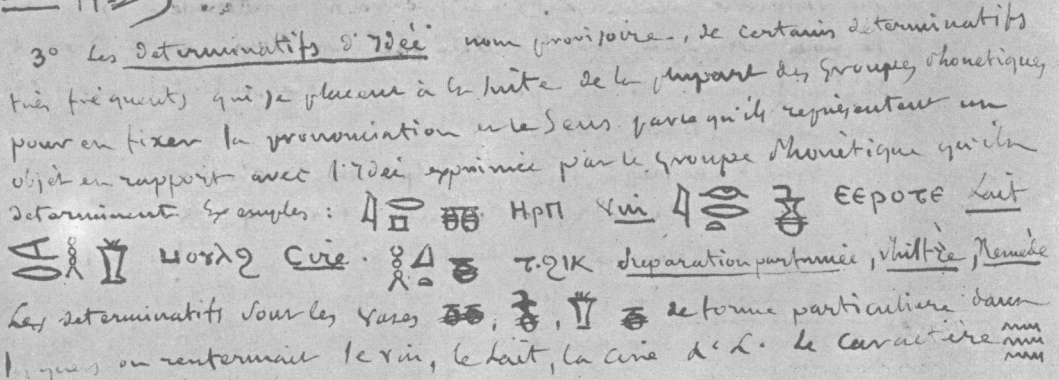 3º Les determinatifs d'Idée nom provisoire, de certains determinatifs
très fréquents qui se placent à la suite de la plupart des Groupes Phonetiques
pour en fixer la prononciation et le Sens parce qu'ils représentent un
objet en rapport avec l'Idée exprimée par le groupe Phonètique qu'ils
determinent. Exemples : ΗΡΠ Vin ΕΕΡΟΤΕ Lait
ⲙⲟⲩⲗϩ Cire. ⲧ.ϩⲓⲕ Preparation parfumée, Philtre, Remède
Les determinatifs sont les vases , , , de forme particuliere dans
on renfermait le vin, le Lait, la Cire &ª &ª. Le Caractère